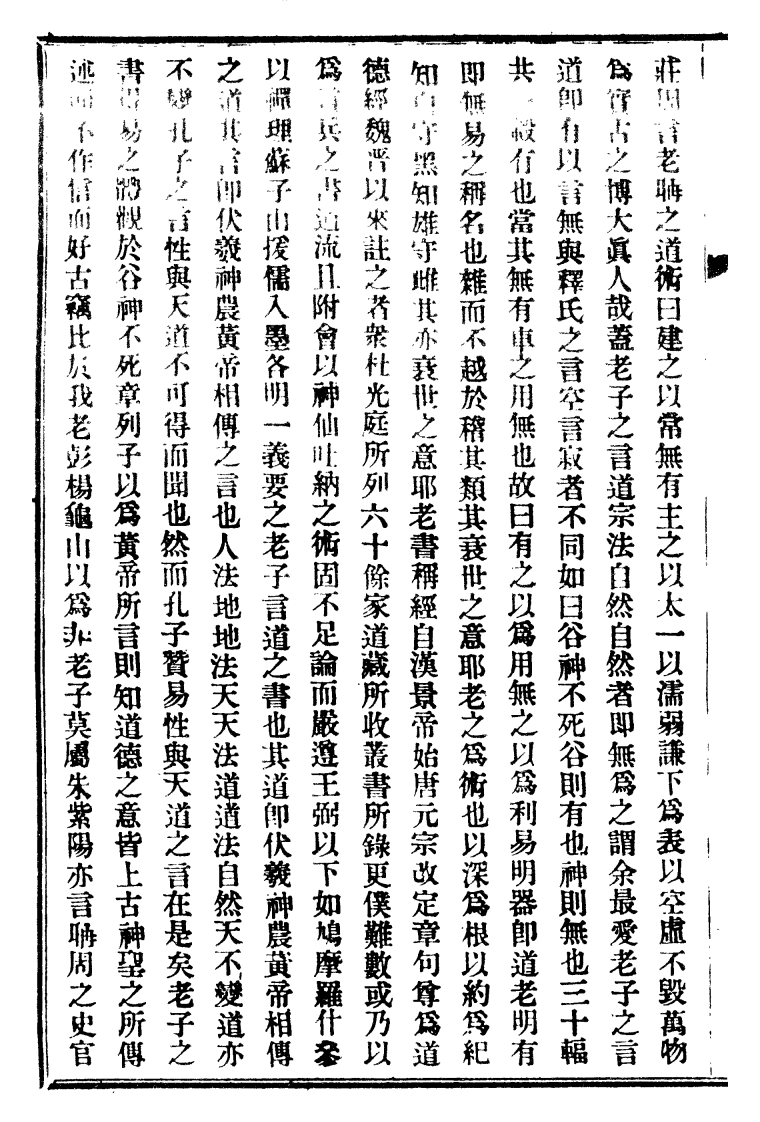 莊周言老聃之道術曰建之以常無有主之以太一以濡弱謙下爲表以空虛不毀萬物
爲實古之博大眞人哉蓋老子之言道宗法自然自然者卽無爲之謂余最愛老子之言
道卽有以言無與釋氏之言空言寂者不同如曰谷神不死谷則有也神則無也三十輻
共一轂有也當其無有車之用無也故曰有之以爲用無之以爲利易明器卽道老明有
卽無易之稱名也雜而不越於稽其類其衰世之意耶老之爲術也以深爲根以約爲紀
知白守黑知雄守雌其亦衰世之意耶老書稱經自漢景帝始唐元宗改定章句尊爲道
德經魏晋以來註之者衆杜光庭所列六十餘家道藏所收叢書所錄更僕難數或乃以
爲言兵之書道流且附會以神仙吐納之術固不足論而嚴遵王弼以下如鳩摩羅什參
以禪理蘇子由援儒入墨各明一義要之老子言道之書也其道卽伏羲神農黃帝相傳
之道其言卽伏羲神農黃帝相傳之言也人法地地法天天法道道法自然天不變道亦
不變孔子之言性與天道不可得而聞也然而孔子贊易性與天道之言在是矣老子之
書得易之體觀於谷神不死章列子以爲黃帝所言則知道德之意皆上古神聖之所傳
述而不作信而好古竊比於我老彭楊龜山以爲非老子莫屬朱紫陽亦言聃周之史官